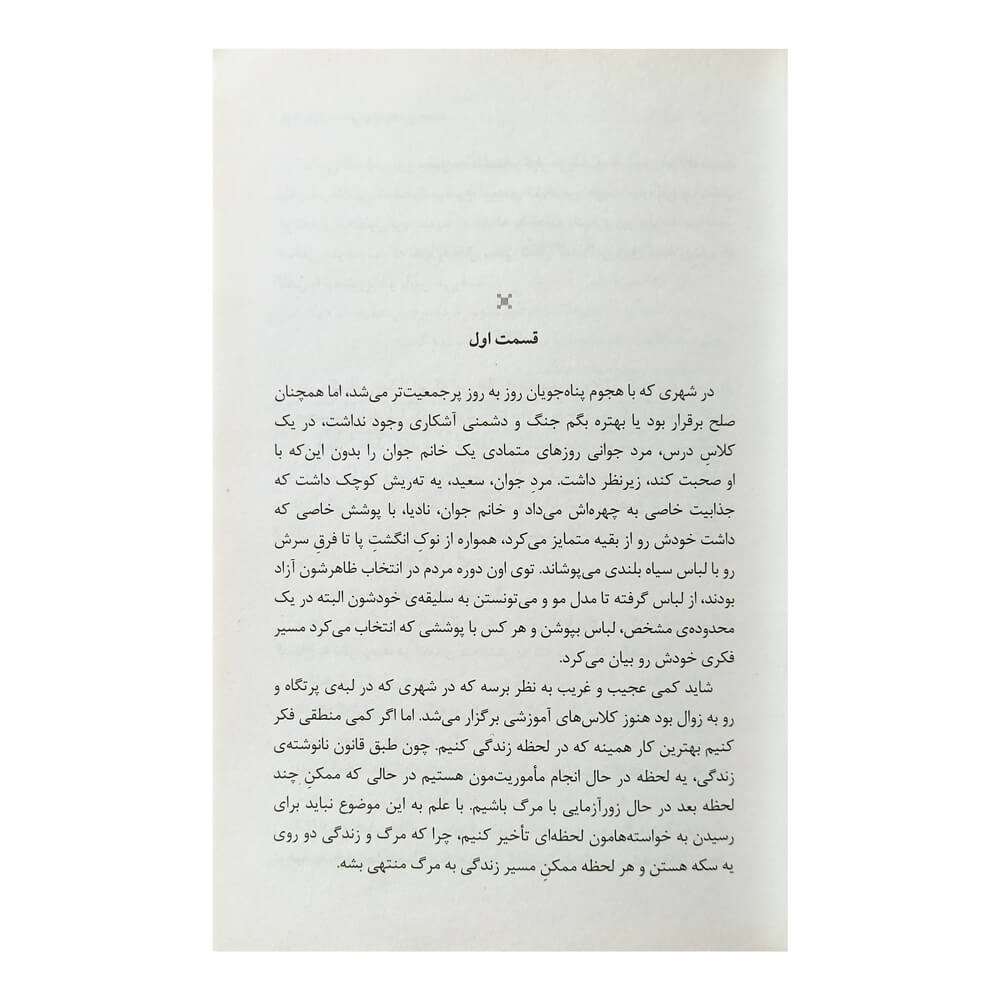 قسمت اول
در شهری که با هجوم پناه‌جویان روز به روز پرجمعیت‌تر می‌شد، اما همچنان
صلح برقرار بود یا بهتره بگم جنگ و دشمنی آشکاری وجود نداشت، در یک
کلاسِ درس، مرد جوانی روزهای متمادی یک خانم جوان را بدون این‌که با
او صحبت کند، زیرنظر داشت. مردِ جوان، سعید، یه ته‌ریش کوچک داشت که
جذابیت خاصی به چهره‌اش می‌داد و خانم جوان، نادیا، با پوشش خاصی که
داشت خودش رو از بقیه متمایز می‌کرد، همواره از نوکِ انگشتِ پا تا فرقِ سرش
رو با لباس سیاه بلندی می‌پوشاند. توی اون دوره مردم در انتخاب ظاهرشون آزاد
بودند، از لباس گرفته تا مدل مو و می‌تونستن به سلیقه‌ی خودشون البته در یک
محدوده‌ی مشخص، لباس بپوشن و هر کس با پوششی که انتخاب می‌کرد مسیر
فکری خودش رو بیان می‌کرد.
شاید کمی عجیب و غریب به نظر برسه که در شهری که در لبه‌ی پرتگاه و
رو به زوال بود هنوز کلاس‌های آموزشی برگزار می‌شد. اما اگر کمی منطقی فکر
کنیم بهترین کار همینه که در لحظه زندگی کنیم. چون طبق قانون نانوشته‌ی
زندگی، یه لحظه در حال انجام مأموریت‌مون هستیم در حالی که ممکنِ چند
لحظه بعد در حال زورآزمایی با مرگ باشیم. با علم به این موضوع نباید برای
رسیدن به خواسته‌هامون لحظه‌ای تأخیر کنیم، چرا که مرگ و زندگی دو روی
یه سکه هستن و هر لحظه ممکنِ مسیر زندگی به مرگ منتهی بشه.